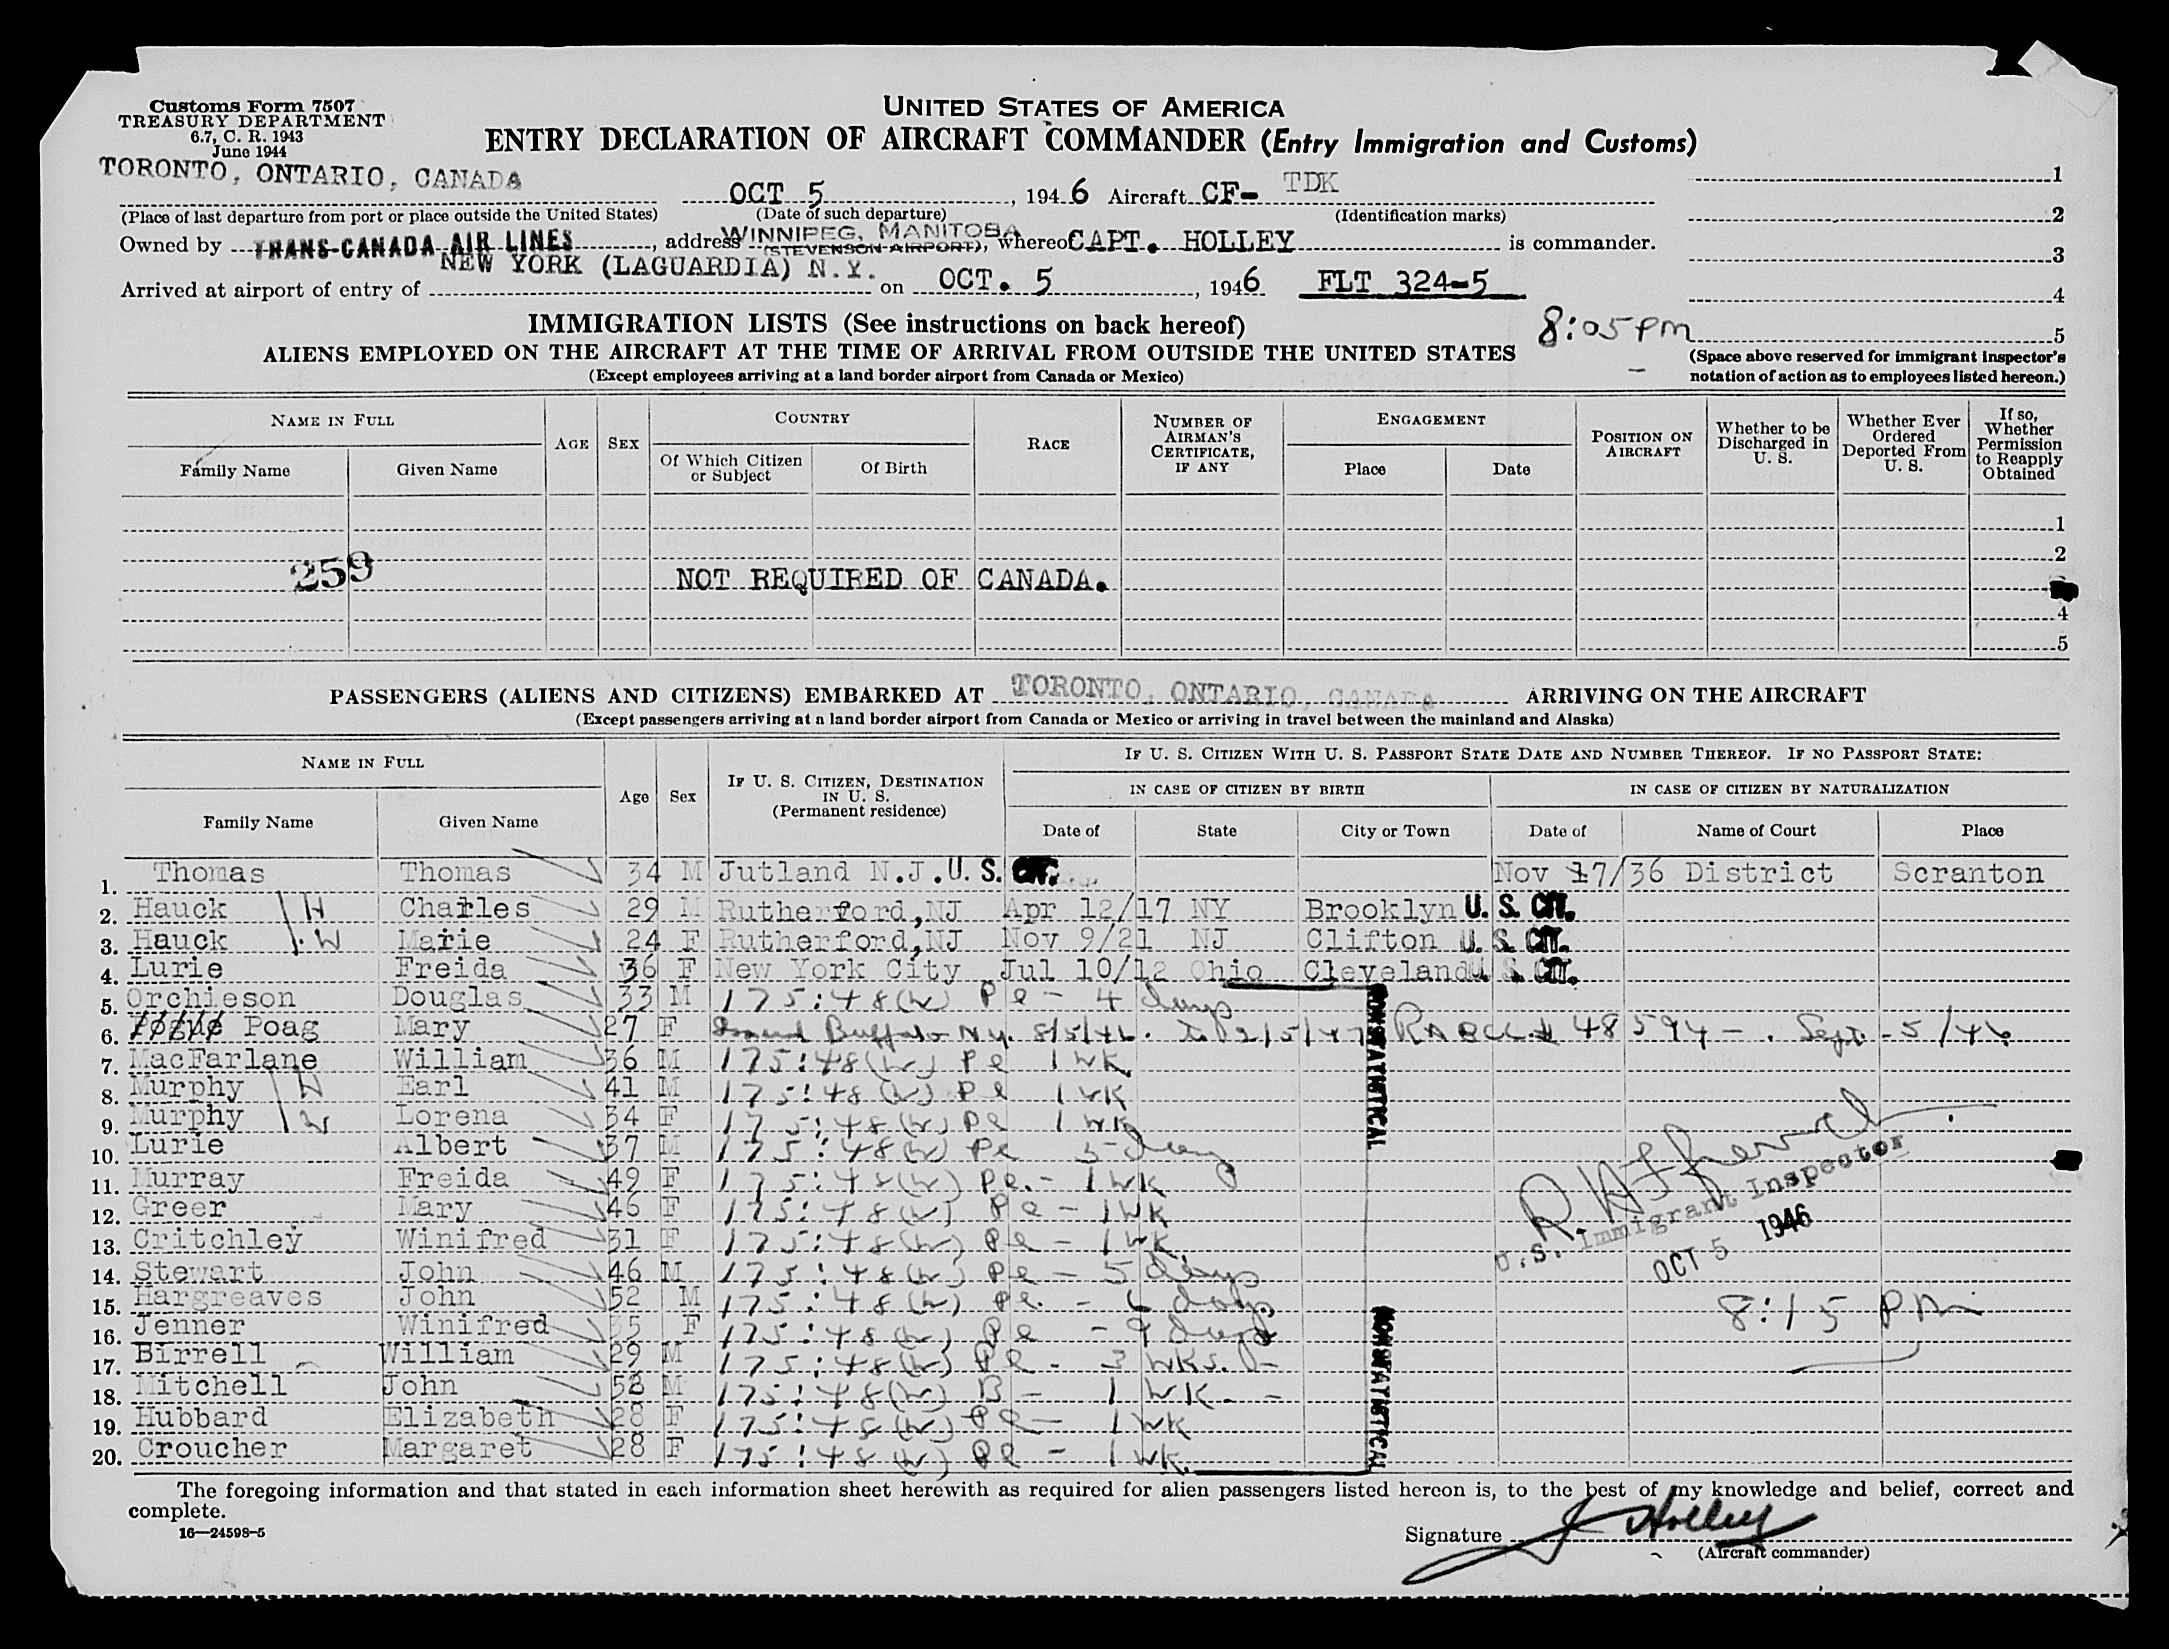 Customs Form 7507
TREASURY DEPARTMENT
6.7, C. R. 1943
June 1944
UNITED STATES OF AMERICA
ENTRY DECLARATION OF AIRCRAFT COMMANDER (Entry Immigration and Customs)
TORONTO, ONTARIO, CANADA OCT 5, 1946 Aircraft CF- TDK 1
(Place of last departure from port or place outside the United States) (Date of such departure) (Identification marks) 2
Owned by TRANS-CANADA AIR LINES, address WINNIPEG, MANITOBA (STEVENSON AIRPORT), whereof CAPT. HOLLEY is commander. 3
Arrived at airport of entry of NEW YORK (LAGUARDIA) N.Y. on OCT. 5, 1946 FLT 324-5 4
IMMIGRATION LISTS (See instructions on back hereof) 8:05 PM 5
ALIENS EMPLOYED ON THE AIRCRAFT AT THE TIME OF ARRIVAL FROM OUTSIDE THE UNITED STATES
(Except employees arriving at a land border airport from Canada or Mexico)
(Space above reserved for immigrant inspector's
notation of action as to employees listed hereon.)
NAME IN FULL AGE SEX COUNTRY RACE NUMBER OF AIRMAN'S CERTIFICATE, IF ANY ENGAGEMENT POSITION ON AIRCRAFT Whether to be Discharged in U. S. Whether Ever Ordered Deported From U. S. If so, Whether Permission to Reapply Obtained
Family Name Given Name Of Which Citizen or Subject Of Birth Place Date
1
2
259 NOT REQUIRED OF CANADA.
4
5
PASSENGERS (ALIENS AND CITIZENS) EMBARKED AT TORONTO, ONTARIO, CANADA ARRIVING ON THE AIRCRAFT
(Except passengers arriving at a land border airport from Canada or Mexico or arriving in travel between the mainland and Alaska)
NAME IN FULL Age Sex IF U. S. CITIZEN, DESTINATION IN U. S. (Permanent residence) IF U. S. CITIZEN WITH U. S. PASSPORT STATE DATE AND NUMBER THEREOF. IF NO PASSPORT STATE:
IN CASE OF CITIZEN BY BIRTH IN CASE OF CITIZEN BY NATURALIZATION
Family Name Given Name Date of State City or Town Date of Name of Court Place
1. Thomas Thomas 34 M Jutland N.J. U. S. CIT. Nov 17/36 District Scranton
2. Hauck H Charles 29 M Rutherford, NJ Apr 12/17 NY Brooklyn U. S. CIT.
3. Hauck W Marie 24 F Rutherford, NJ Nov 9/21 NJ Clifton U. S. CIT.
4. Lurie Freida 36 F New York City Jul 10/12 Ohio Cleveland U. S. CIT.
5. Orchieson Douglas 33 M 175:48(w) Pl - 4 days
6. Poag Mary 27 F Buffalo N.Y. 8/5/46. to 2/5/47 48594 - . Sept. - 5/46
7. MacFarlane William 36 M 175:48(w) Pl 1 wk
8. Murphy H Earl 41 M 175:48(w) Pl 1 wk
9. Murphy W Lorena 34 F 175:48(w) Pl 1 wk
10. Lurie Albert 37 M 175:48(w) Pl 5 day
11. Murray Freida 49 F 175:48(w) Pl. - 1 wk
12. Greer Mary 46 F 175:48(w) Pl - 1 wk
13. Critchley Winifred 31 F 175:48(w) Pl - 1 wk.
14. Stewart John 46 M 175:48(w) Pl - 5 days
15. Hargreaves John 52 M 175:48(w) Pl. - 6 days
16. Jenner Winifred 35 F 175:48(w) Pl - 9 days
17. Birrell William 29 M 175:48(w) Pl. - 3 wks. -
18. Mitchell John 58 M 175:48(w) B - 1 wk. -
19. Hubbard Elizabeth 28 F 175:48(w) Pl - 1 wk
20. Croucher Margaret 28 F 175:48(w) Pl - 1 wk.
NONSTATISTICAL
NONSTATISTICAL
U.S. Immigrant Inspector
OCT 5 1946
8:15 PM
The foregoing information and that stated in each information sheet herewith as required for alien passengers listed hereon is, to the best of my knowledge and belief, correct and
complete.
16—24598-5
Signature J Holley
(Aircraft commander)